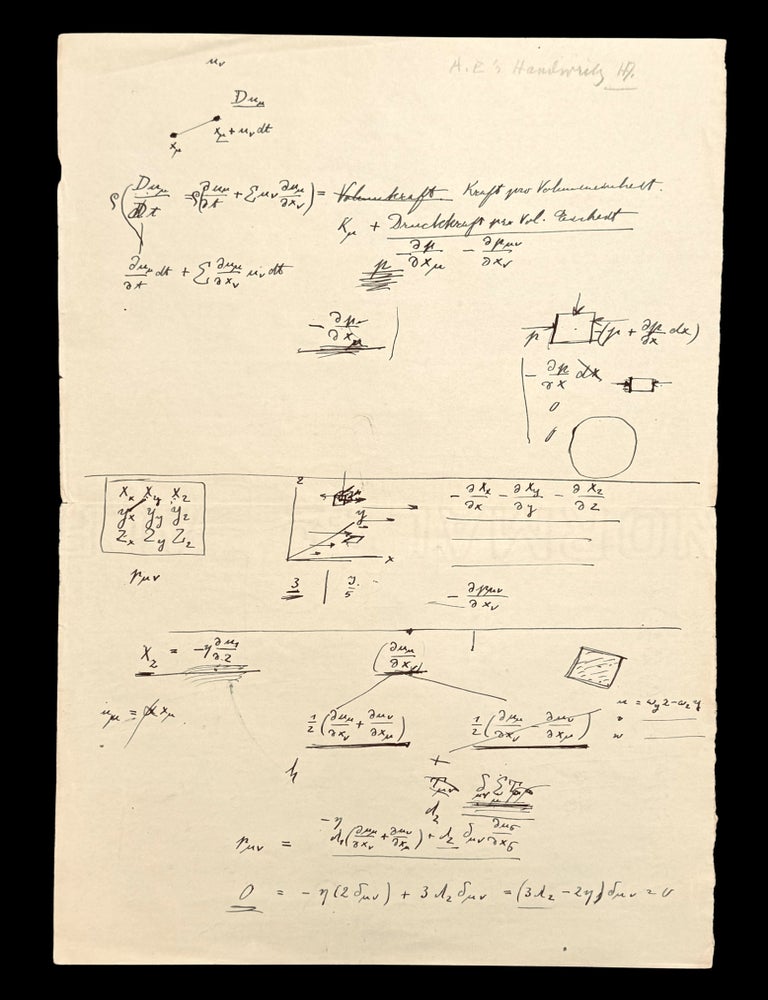 u_ν
A. E's Handwriting
Du_μ
x_μ   x_μ + u_ν dt
ρ( Du_μ/Dt = ρ( ∂u_μ/∂t + Σ u_ν ∂u_μ/∂x_ν ) = Volumkraft. Kraft pro Volumeneinheit.
K_μ + Druckkraft pro Vol. Einheit
∂u_μ/∂t dt + Σ ∂u_μ/∂x_ν u_ν dt
p   - ∂p/∂x_μ   - ∂p_μν/∂x_ν
- ∂p/∂x_μ
p   (p + ∂p/∂x dx)
- ∂p/∂x dx
0
0
X_x X_y X_z
Y_x Y_y Y_z
Z_x Z_y Z_z
p_μν
z
y
x
3
- ∂X_x/∂x - ∂X_y/∂y - ∂X_z/∂z
- ∂p_μν/∂x_ν
X_z = -η ∂u_1/∂z
( ∂u_μ/∂x_ν )
u_μ = α x_μ
1/2 ( ∂u_μ/∂x_ν + ∂u_ν/∂x_μ )
1/2 ( ∂u_μ/∂x_ν - ∂u_ν/∂x_μ )
u = ω_y z - ω_z y
v
w
+
δ_μν Σ
-η
p_μν = λ_1 ( ∂u_μ/∂x_ν + ∂u_ν/∂x_μ ) + λ_2 δ_μν ∂u_σ/∂x_σ
0 = - η (2 δ_μν) + 3 λ_2 δ_μν = (3 λ_2 - 2η) δ_μν = 0